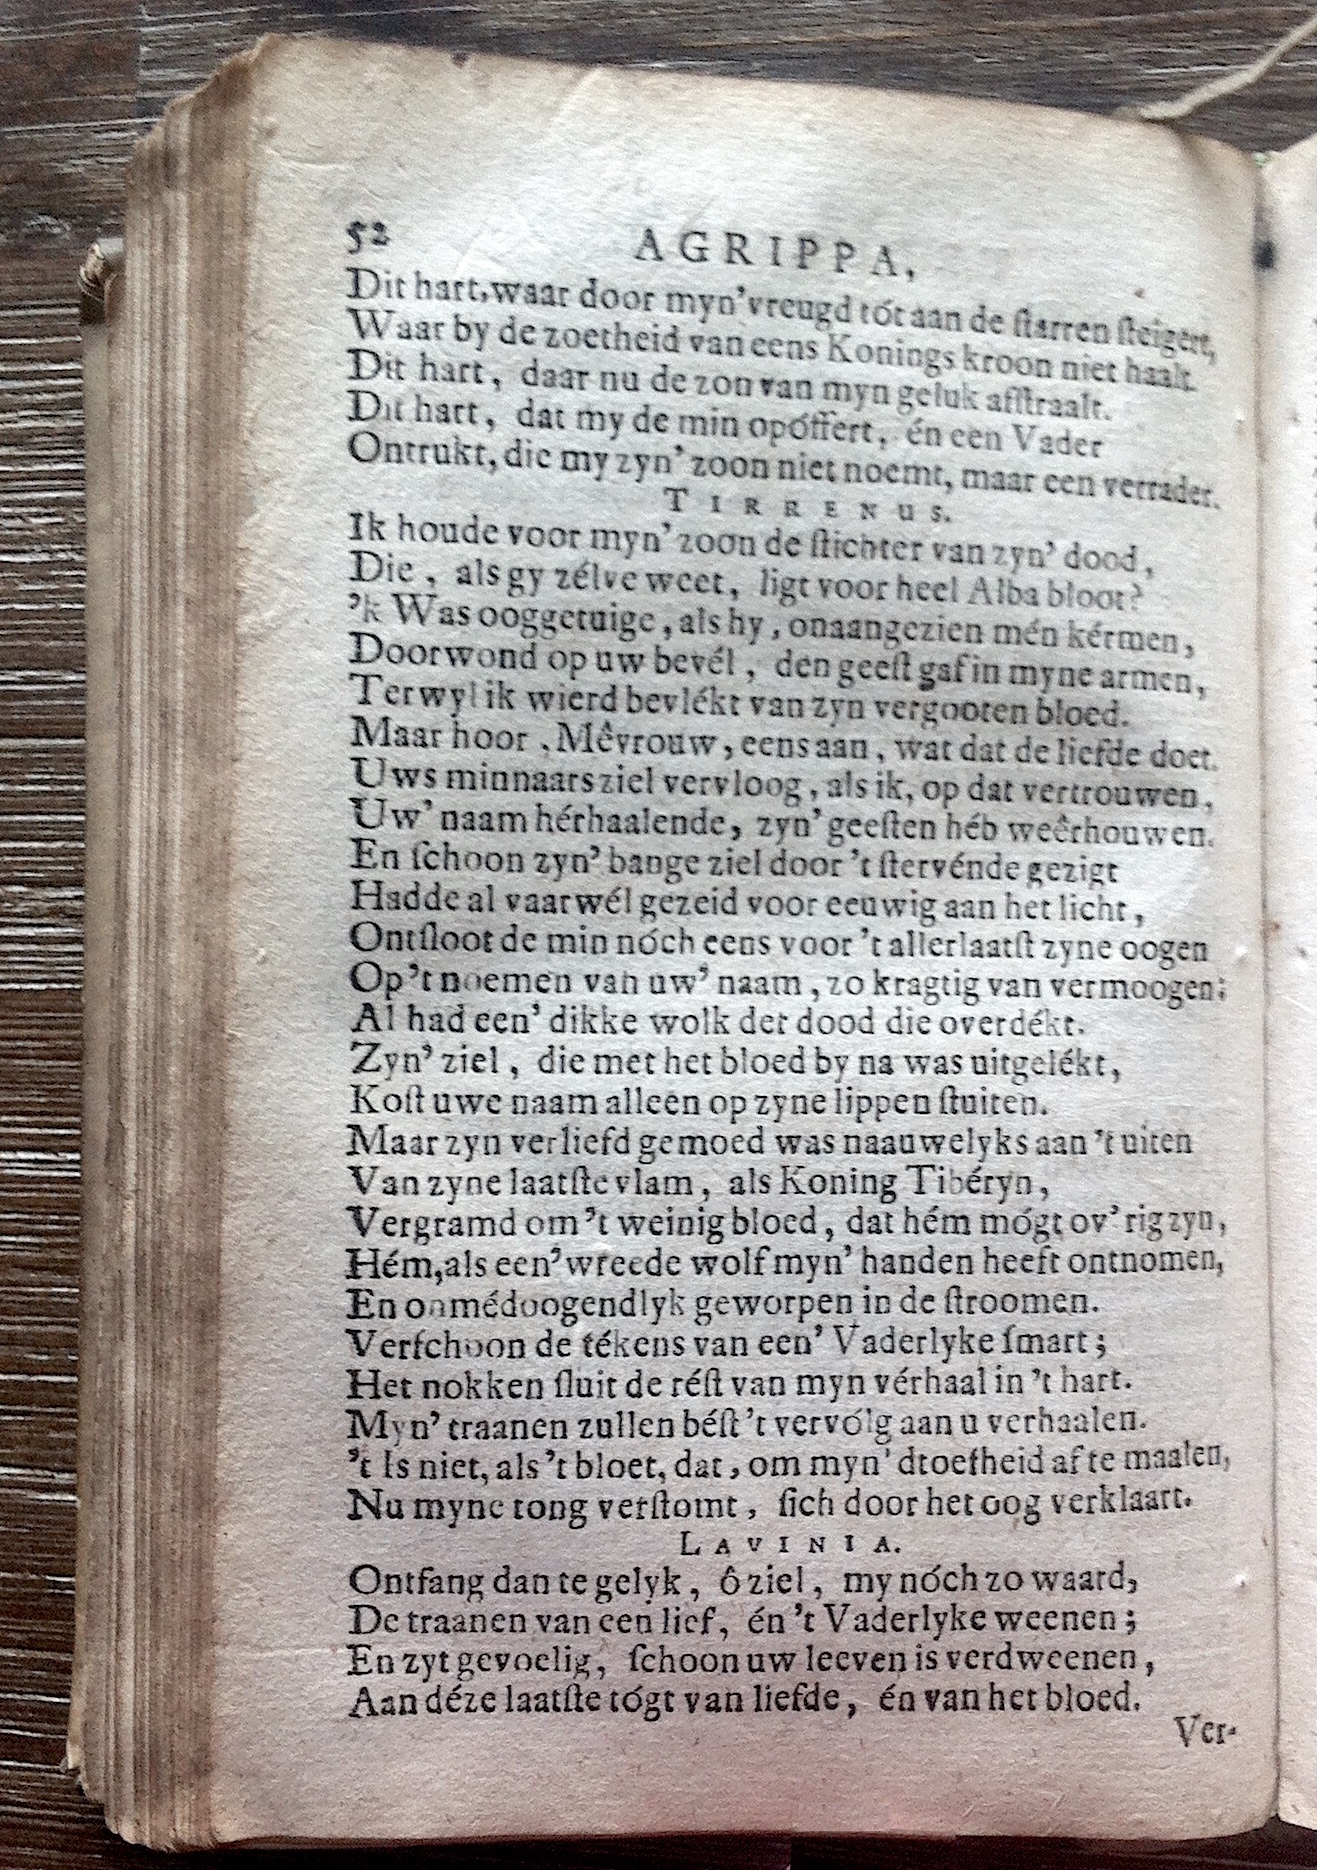 52 AGRIPPA,
Dit hart, waar door myn' vreugd tót aan de ſtarren ſteigert,
Waar by de zoetheid van eens Konings kroon niet haalt.
Dit hart, daar nu de zon van myn geluk afſtraalt.
Dit hart, dat my de min opóffert, én een Vader
Ontrukt, die my zyn' zoon niet noemt, maar een verrader.
TIRRENUS.
Ik houde voor myn' zoon de ſtichter van zyn' dood,
Die, als gy zélve weet, ligt voor heel Alba bloot?
'k Was ooggetuige, als hy, onaangezien mén kérmen,
Doorwond op uw bevél, den geeſt gaf in myne armen,
Terwyl ik wierd bevlékt van zyn vergooten bloed.
Maar hoor, Mêvrouw, eens aan, wat dat de liefde doet.
Uws minnaars ziel vervloog, als ik, op dat vertrouwen,
Uw' naam hérhaalende, zyn' geeſten héb weêrhouwen.
En ſchoon zyn' bange ziel door 't ſtervénde gezigt
Hadde al vaarwél gezeid voor eeuwig aan het licht,
Ontſloot de min nóch eens voor 't allerlaatſt zyne oogen
Op 't noemen van uw' naam, zo kragtig van vermoogen;
Al had een' dikke wolk det dood die overdékt.
Zyn' ziel, die met het bloed by na was uitgelékt,
Koſt uwe naam alleen op zyne lippen ſtuiten.
Maar zyn verliefd gemoed was naauwelyks aan 't uiten
Van zyne laatſte vlam, als Koning Tibéryn,
Vergramd om 't weinig bloed, dat hém mógt ov'rig zyn,
Hém, als een' wreede wolf myn' handen heeft ontnomen,
En onmédoogendlyk geworpen in de ſtroomen.
Verſchoon de tékens van een' Vaderlyke ſmart;
Het nokken ſluit de réſt van myn vérhaal in 't hart.
Myn' traanen zullen béſt 't vervólg aan u verhaalen.
't Is niet, als 't bloet, dat, om myn' dtoefheid af te maalen,
Nu myne tong verſtomt, ſich door het oog verklaart.
LAVINIA.
Ontfang dan te gelyk, ô ziel, my nóch zo waard,
De traanen van een lief, én 't Vaderlyke weenen;
En zyt gevoelig, ſchoon uw leeven is verdweenen,
Aan déze laatſte tógt van liefde, én van het bloed.
Ver-